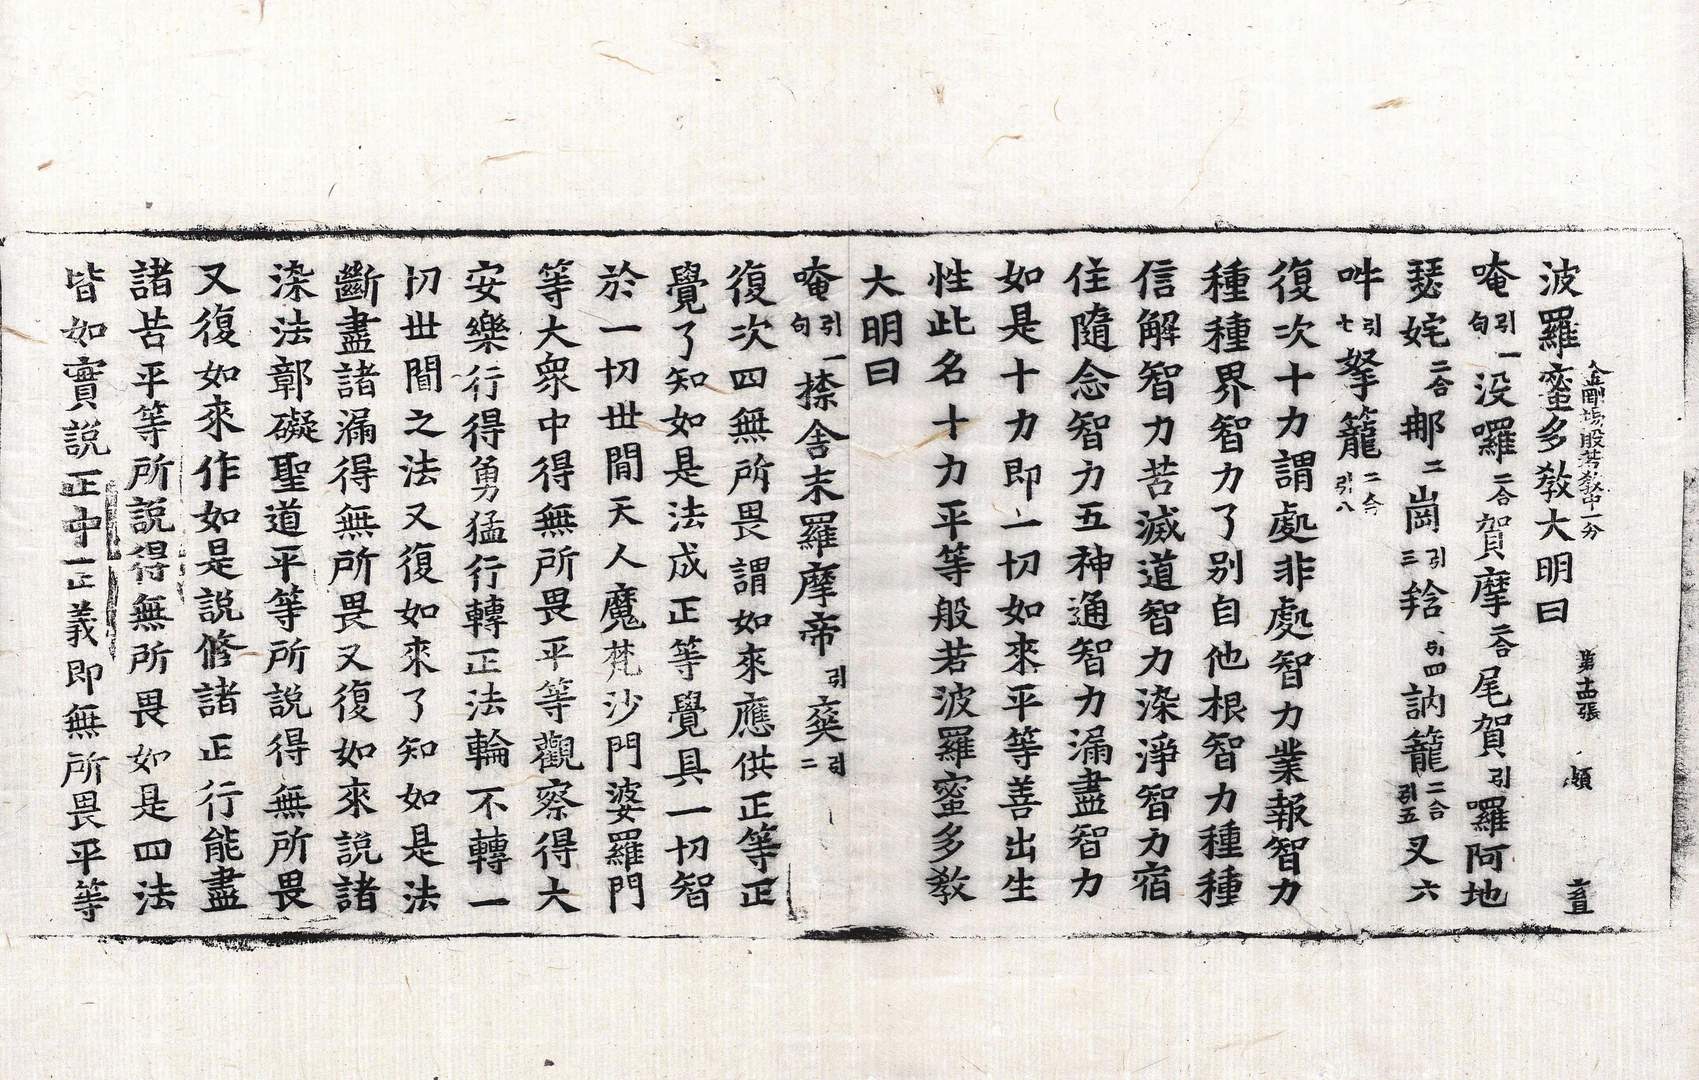 波羅蜜多教大明曰
金剛場般若教中一分 第十四張 頻 直
唵引一句没囉二合賀摩二合尾賀引囉阿地
瑟姹二合那二崗引三䤈引四訥籠二合引五叉六
吽引七拏籠二合引八
復次十力謂處非處智力業報智力
種種界智力了別自他根智力種種
信解智力苦滅道智力染淨智力宿
住隨念智力五神通智力漏盡智力
如是十力即一切如來平等善出生
性此名十力平等般若波羅蜜多教
大明曰
唵引一句捺舍末羅摩帝引奭引二
復次四無所畏謂如來應供正等正
覺了知如是法成正等覺具一切智
於一切世間天人魔梵沙門婆羅門
等大衆中得無所畏平等觀察得大
安樂行得勇猛行轉正法輪不轉一
切世間之法又復如來了知如是法
斷盡諸漏得無所畏又復如來說諸
染法鄣礙聖道平等所說得無所畏
又復如來作如是說修諸正行能盡
諸苦平等所說得無所畏如是四法
皆如實說正中正義即無所畏平等